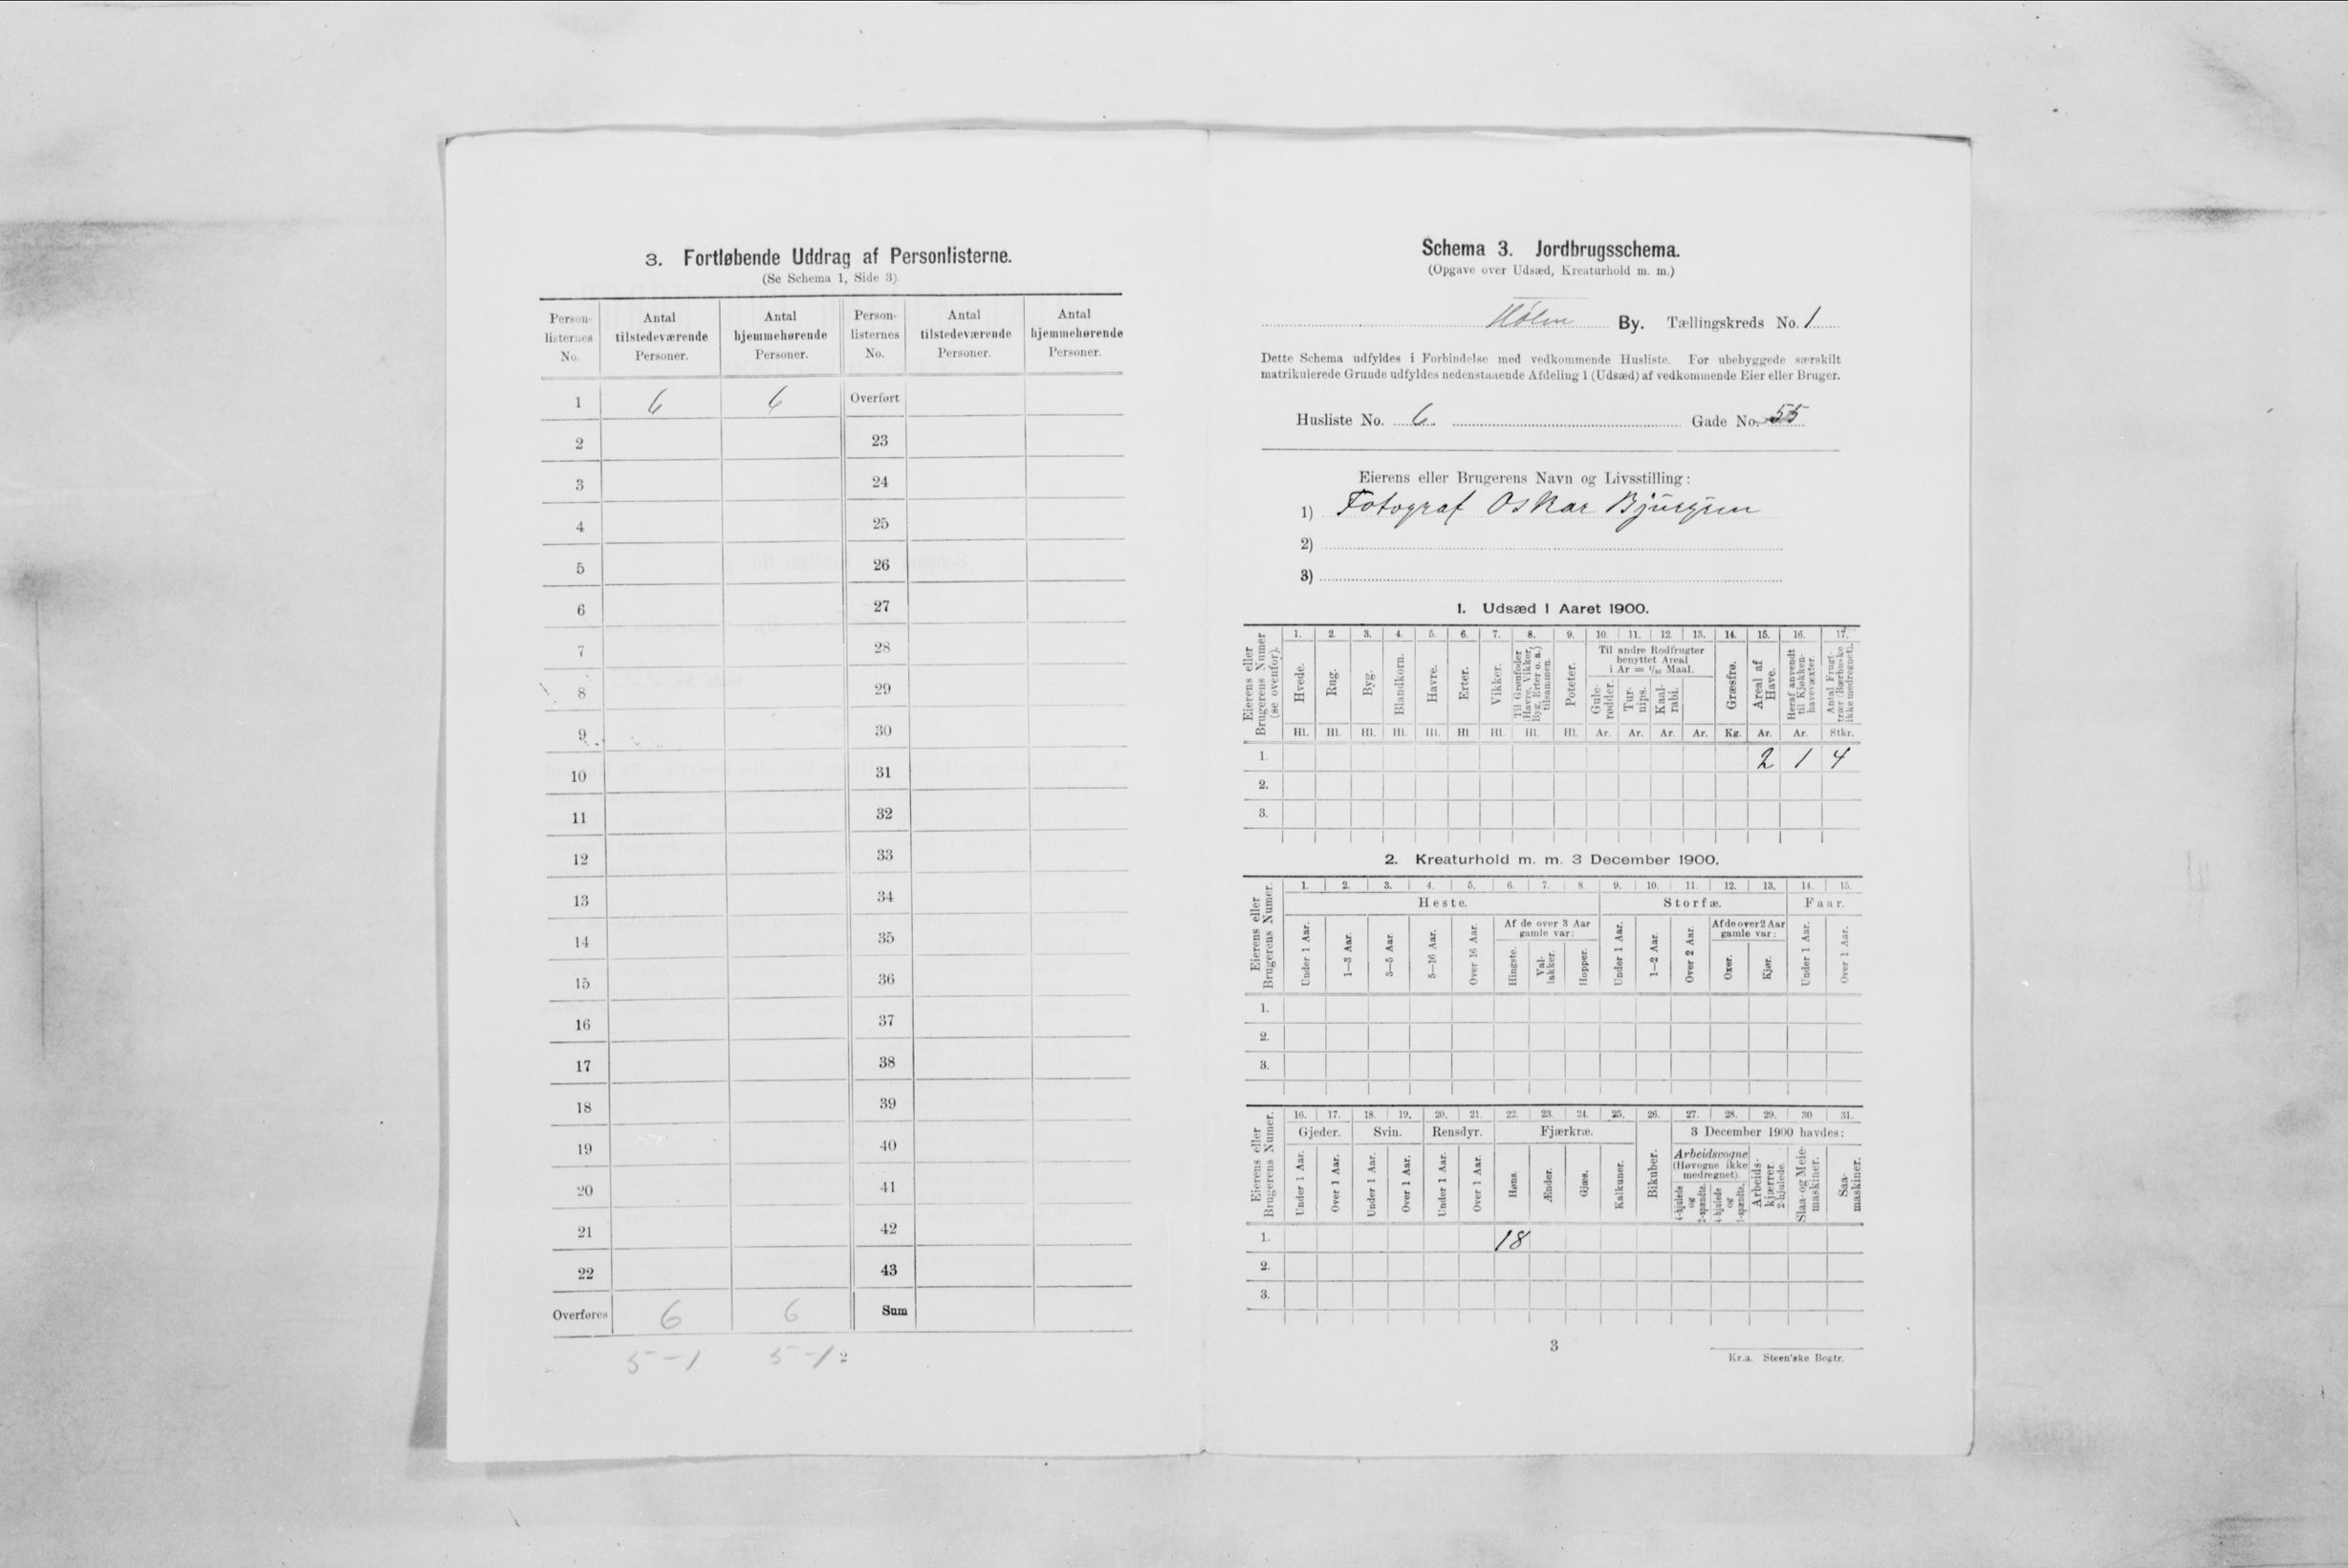 3. Fortløbende Uddrag af Personlisterne.
(Se Schema 1, Side 3).
Person-listernes No. Antal tilstedeværende Personer. Antal hjemmehørende Personer. Person-listernes No. Antal tilstedeværende Personer. Antal hjemmehørende Personer.
1 6 6 Overført
2 23
3 24
4 25
5 26
6 27
7 28
8 29
9 30
10 31
11 32
12 33
13 34
14 35
15 36
16 37
17 38
18 39
19 40
20 41
21 42
22 43
Overføres 6 6 Sum
5-1 5-1
2
Schema 3. Jordbrugsschema.
(Opgave over Udsæd, Kreaturhold m. m.)
Hølen By. Tællingskreds No. 1
Dette Schema udfyldes i Forbindelse med vedkommende Husliste. For ubebyggede særskilt
matrikulerede Grunde udfyldes nedenstaaende Afdeling 1 (Udsæd) af vedkommende Eier eller Bruger.
Husliste No. 6 Gade No. 55
Eierens eller Brugerens Navn og Livsstilling:
1) Fotograf Oskar
2)
3)
1. Udsæd i Aaret 1900.
Eierens eller Brugerens Numer (se ovenfor).
1. 2. 3. 4. 5. 6. 7. 8. 9. 10. 11. 12. 13. 14. 15. 16. 17.
Til andre Rodfrugter benyttet Areal i Ar = 1/10 Maal.
Hvede. Rug. Byg. Blandkorn. Havre. Erter. Vikker. Til Grønfoder (Havre, Vikker, Byg, Erter o. a.) tilsammen. Poteter. Gule-rødder. Tur-nips. Kaal-rabi. Græsfrø. Areal af Have. Heraf anvendt til Kjøkken-havevæxter. Antal Frugt-trær (Bærbuske ikke medregnet).
Hl. Hl. Hl. Hl. Hl. Hl. Hl. Hl. Hl. Ar. Ar. Ar. Ar. Kg. Ar. Ar. Stkr.
1. 2 1 4
2.
3.
2. Kreaturhold m. m. 3 December 1900.
Eierens eller Brugerens Numer.
1. 2. 3. 4. 5. 6. 7. 8. 9. 10. 11. 12. 13. 14. 15.
Heste. Storfæ. Faar.
Af de over 3 Aar gamle var: Af de over 2 Aar gamle var:
Under 1 Aar. 1—3 Aar. 3—5 Aar. 5—16 Aar. Over 16 Aar. Hingste. Val-lakker. Hopper. Under 1 Aar. 1—2 Aar. Over 2 Aar. Oxer. Kjør. Under 1 Aar. Over 1 Aar.
1.
2.
3.
Eierens eller Brugerens Numer.
16. 17. 18. 19. 20. 21. 22. 23. 24. 25. 26. 27. 28. 29. 30 31.
Gjeder. Svin. Rensdyr. Fjærkræ. 3 December 1900 havdes:
Arbeidsvogne (Høvogne ikke medregnet).
Under 1 Aar. Over 1 Aar. Under 1 Aar. Over 1 Aar. Under 1 Aar. Over 1 Aar. Høns. Ænder. Gjæs. Kalkuner. Bikuber. 4-hjulede og 2-spændte. 4-hjulede og 1-spændte. Arbeids-kjærrer 2-hjulede. Slaa- og Meie-maskiner. Saa-maskiner.
1. 18
2.
3.
3
Kr.a. Steen'ske Bogtr.